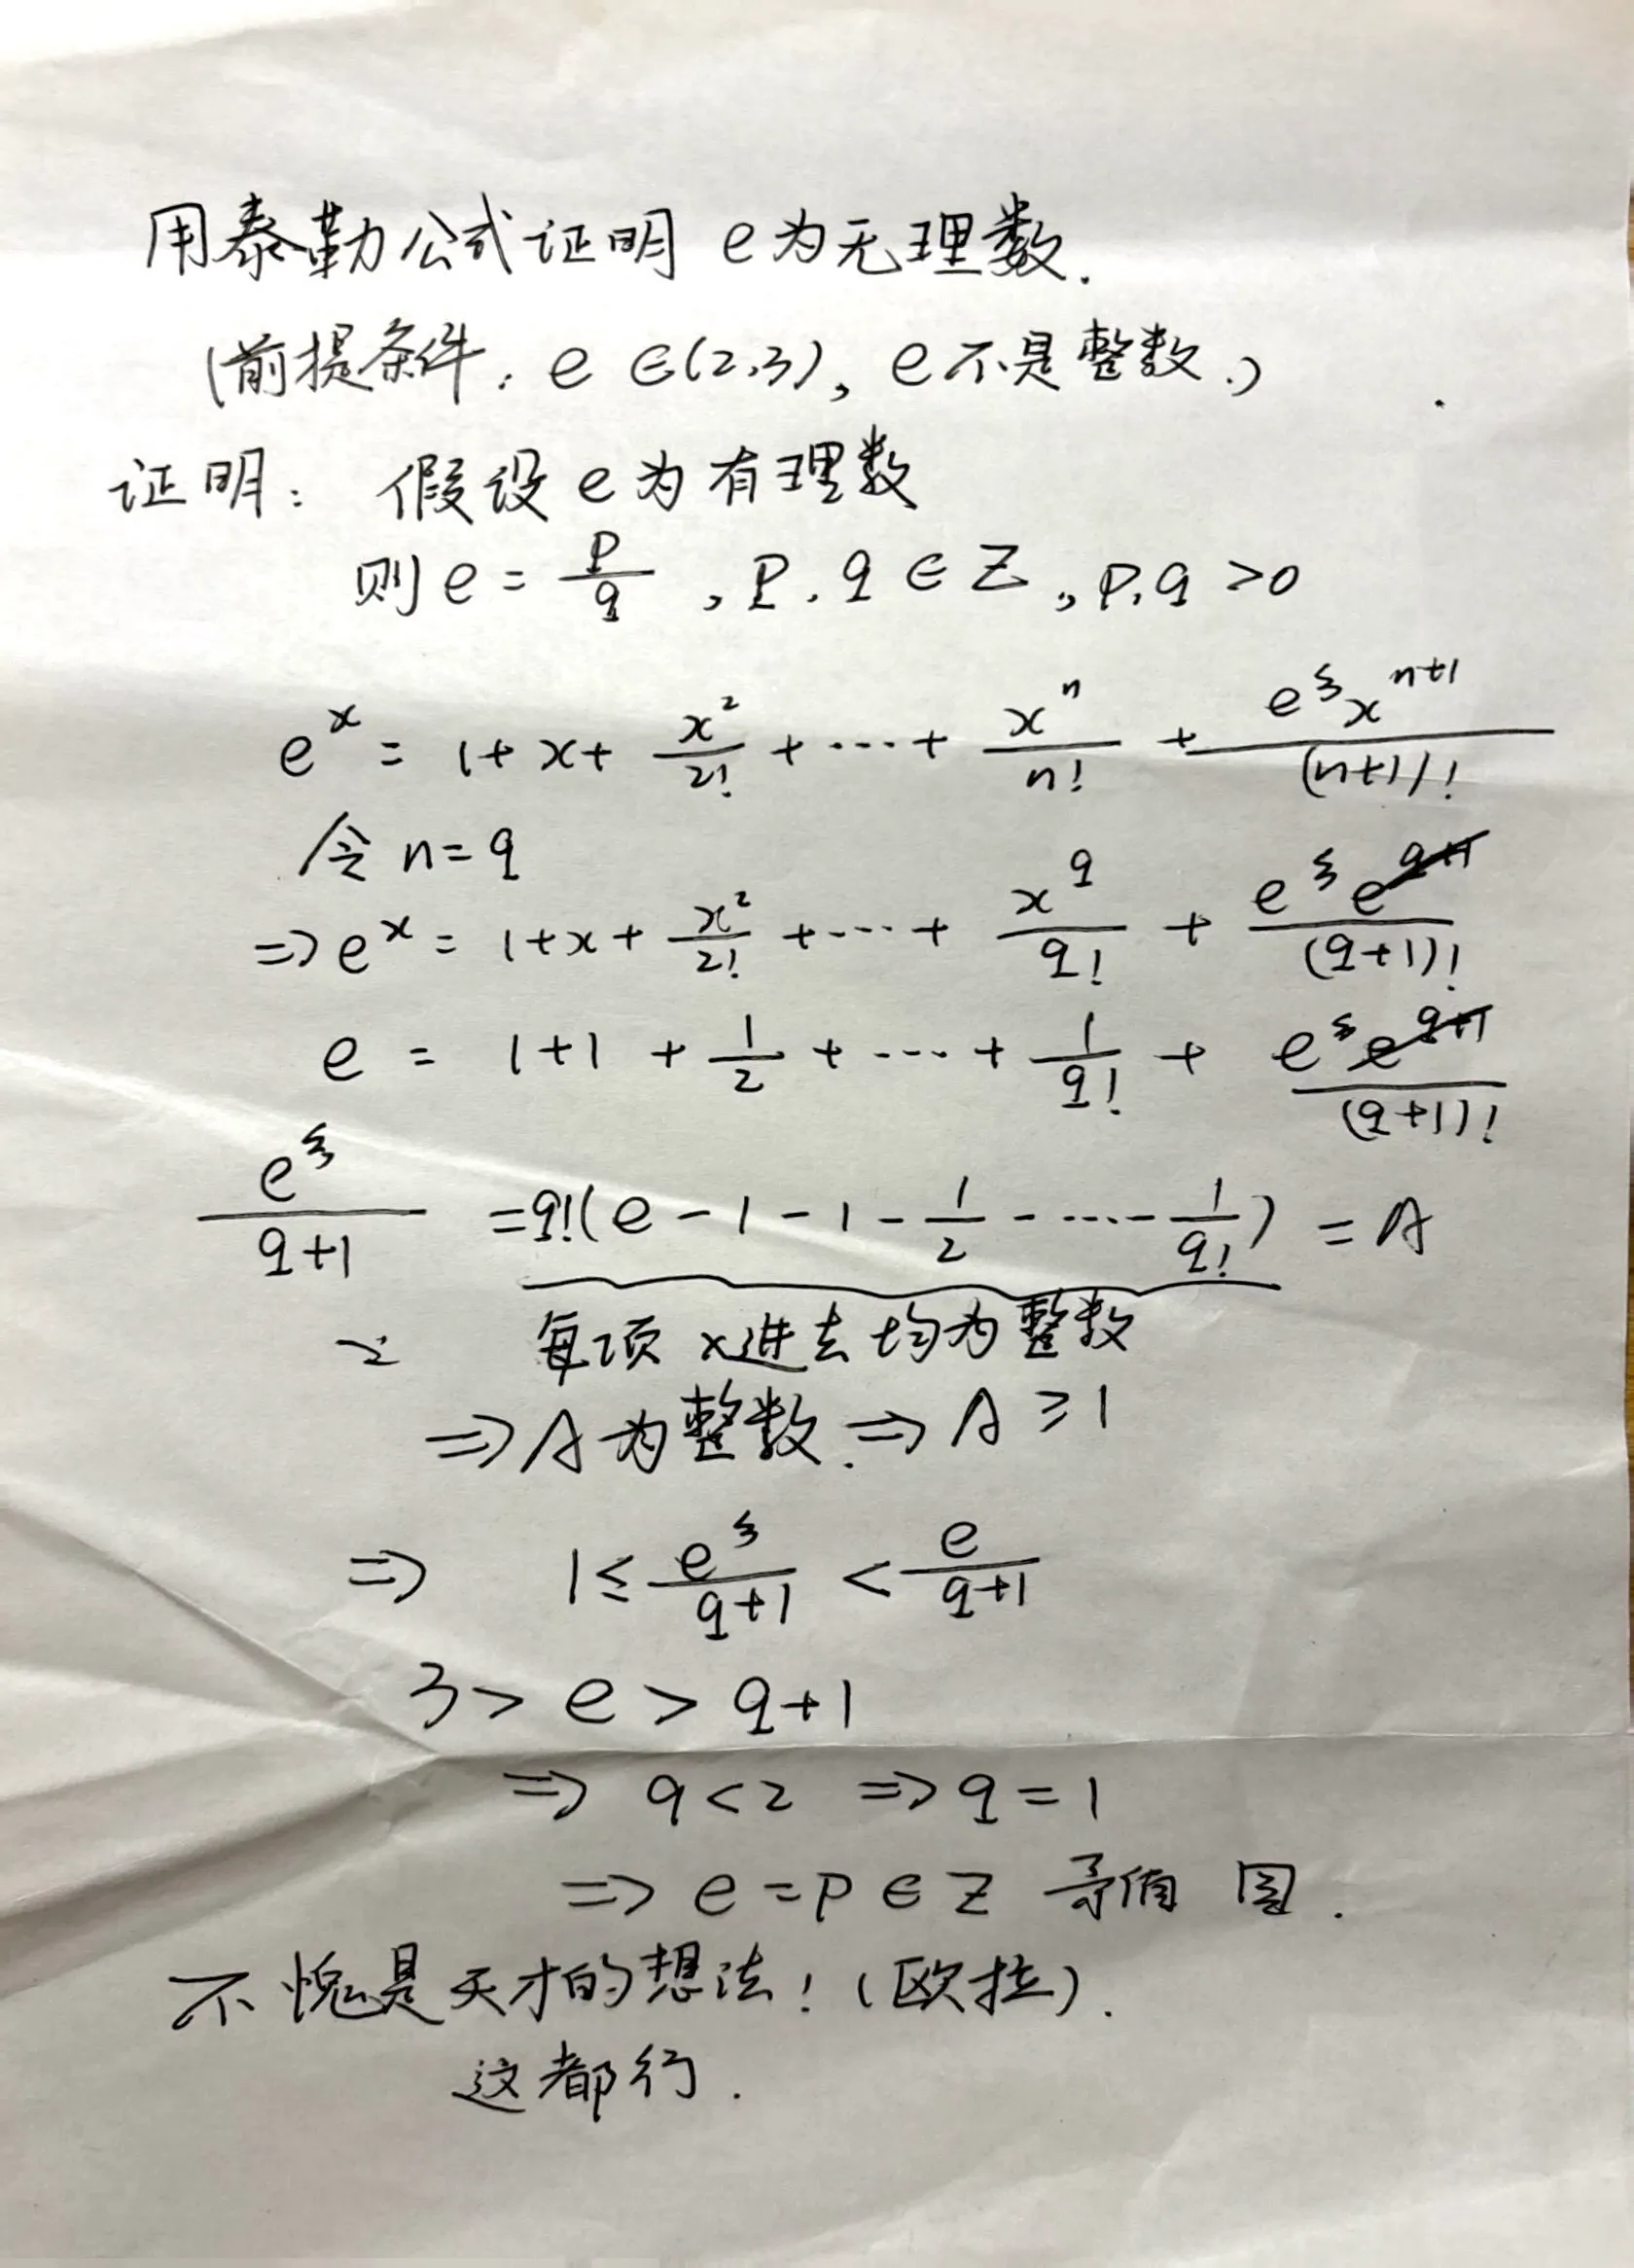 用泰勒公式证明 e为无理数.
(前提条件: e ∈(2,3), e不是整数.)
证明: 假设e为有理数
则 e = p/q , p, q ∈ Z, p,q >0
e^x = 1+x+ x²/2! + ⋯ + x^n/n! + e^ξ x^(n+1)/(n+1)!
令 n=q
⇒ e^x = 1+x+ x²/2! + ⋯ + x^q/q! + e^ξ e/(q+1)!
e = 1+1 + 1/2 + ⋯ + 1/q! + e^ξ/(q+1)!
e^ξ/(q+1) = q!(e-1-1-1/2-⋯-1/q!) = A
每项×进去均为整数
⇒ A为整数. ⇒ A ≥ 1
⇒ 1 ≤ e^ξ/(q+1) < e/(q+1)
3 > e > q+1
⇒ q<2 ⇒ q=1
⇒ e = p ∈ Z 矛盾
不愧是天才的想法! (欧拉).
这都行.